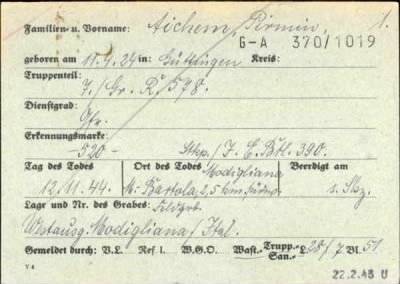 Familien- u. Vorname: Aichem, Pirmin, 1.
G-A 370/1019
geboren am 11.4.24 in: Güttingen Kreis:
Truppenteil:
7./Gr. R. 578.
Dienstgrad:
Gfr.
Erkennungsmarke:
-520- Stkp./J. E. Btl. 390.
Tag des Todes Ort des Todes Modigliana Beerdigt am
12.11.44. M. Bartola, 2,5 km s. Skz.
Lage und Nr. des Grabes: Feldgrb.
Westausg. Modigliana/Ital.
Gemeldet durch: V.L. Ref I. W.G.O. Wast.- Trupp.- San.- L 28/7 Bl. 51
V 4
22.2.45 U